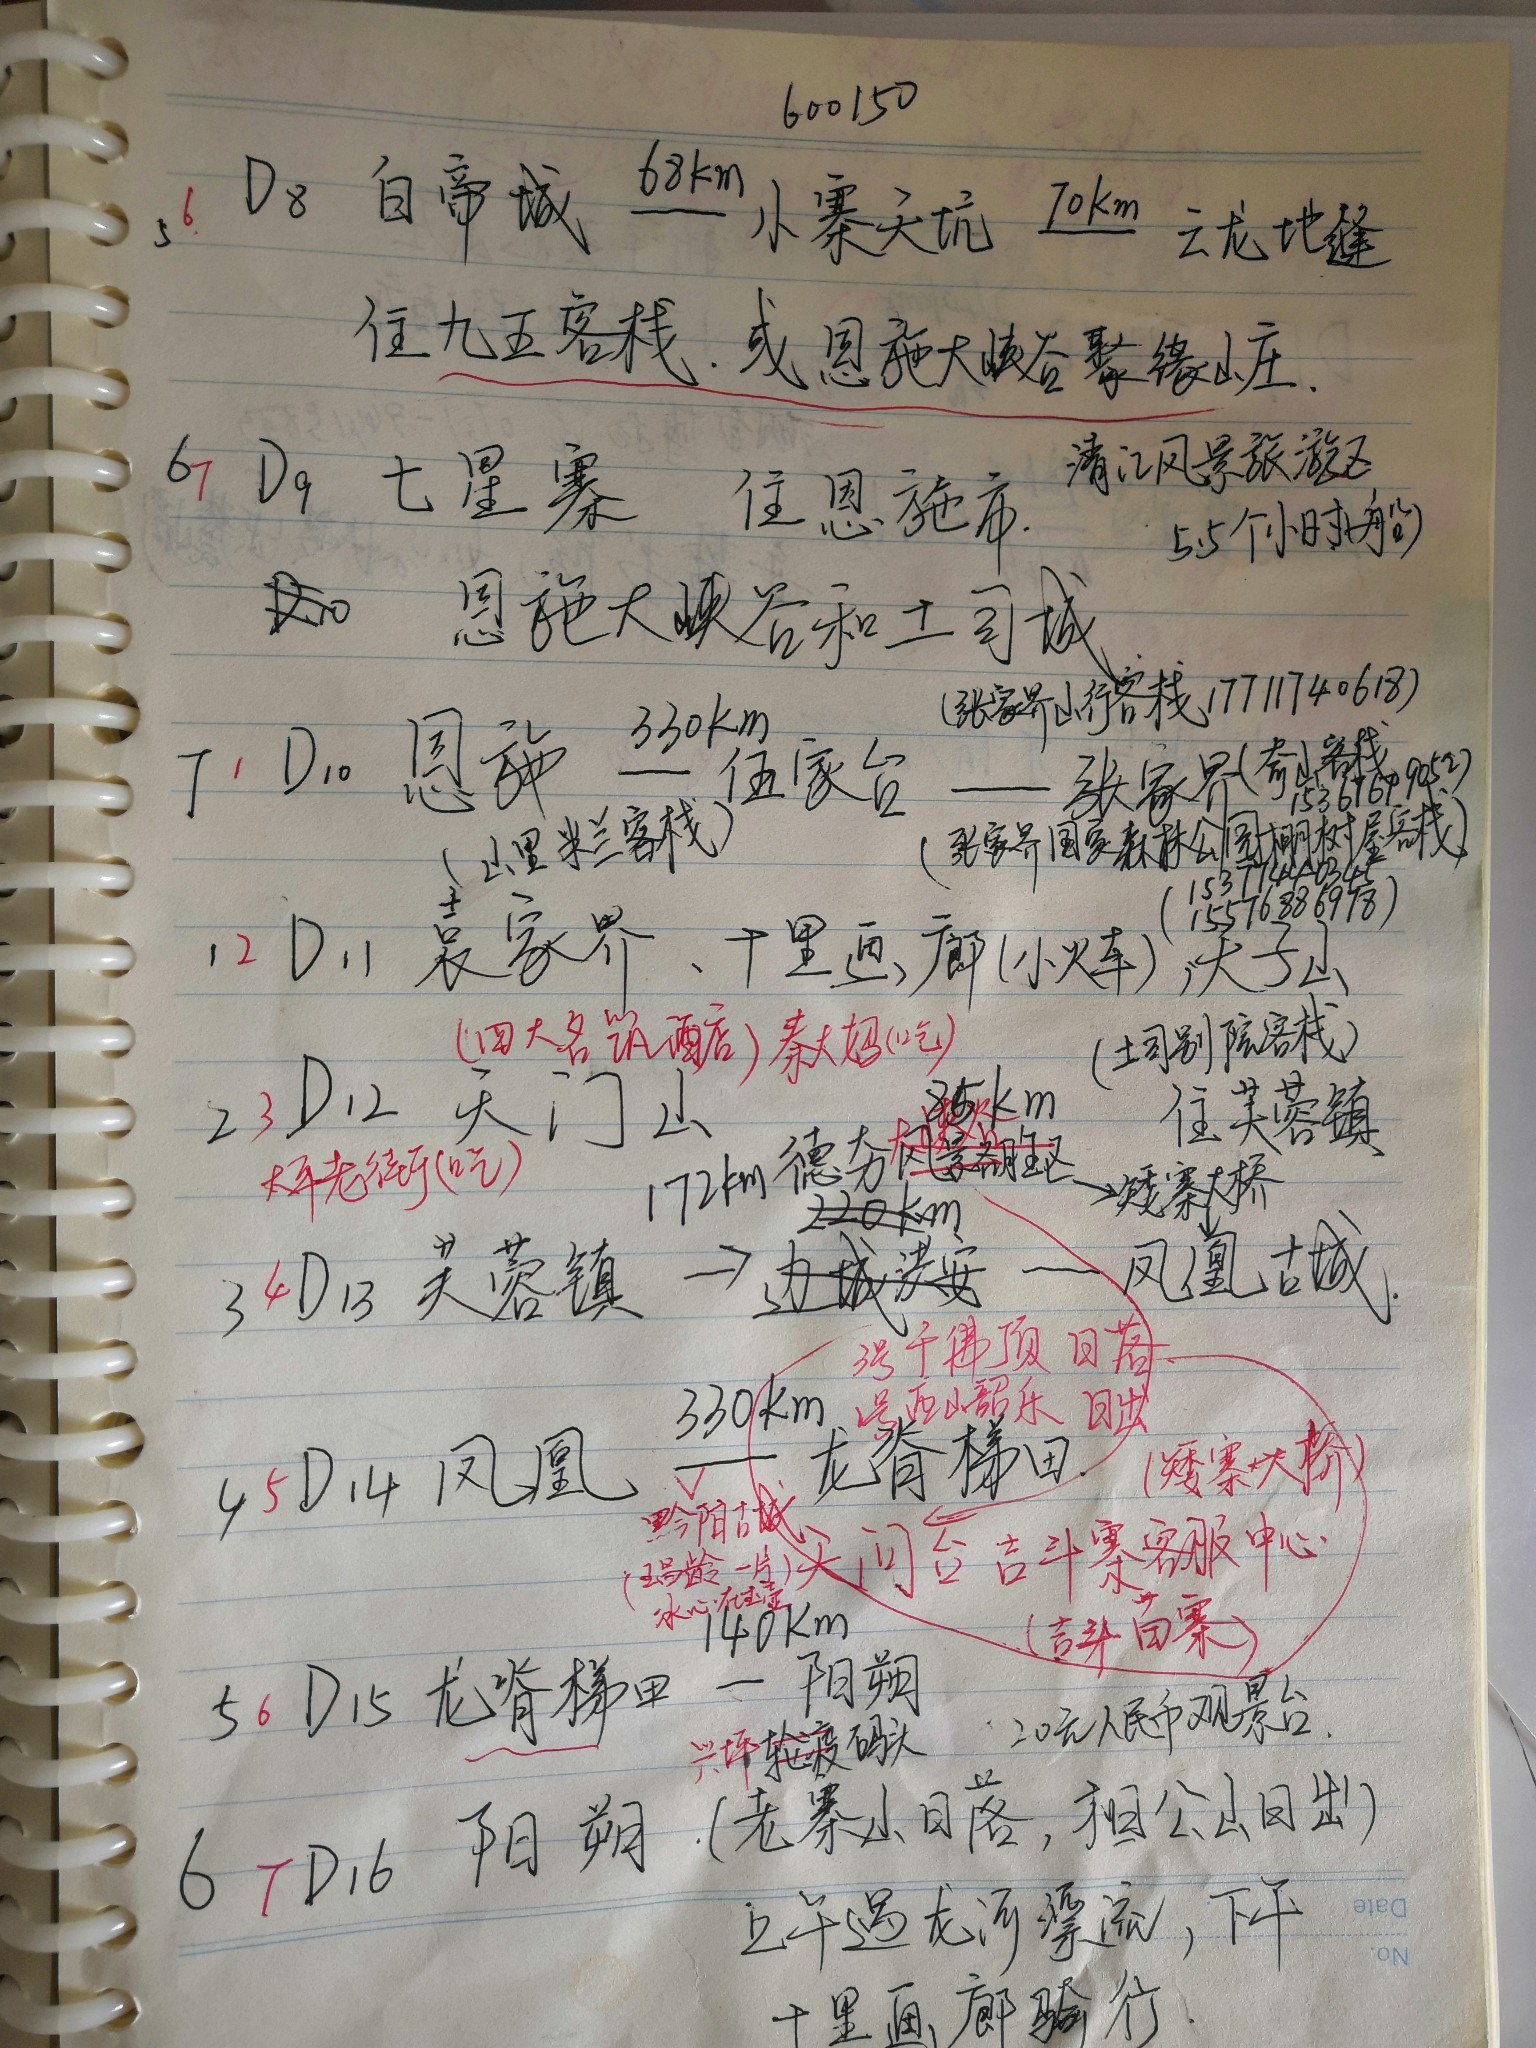 600150
5 6 D8 白帝城 68km 小寨天坑 70km 云龙地缝
住九五客栈.或恩施大峡谷聚缘山庄.
6 7 D9 七星寨 住恩施市. 清江风景旅游区
5.5个小时(船)
D10 恩施大峡谷和土司城
(张家界山行客栈17711740618)
7 1 D10 恩施 330km 伍家台 — 张家界(奇山客栈
15367649052)
(山里米兰客栈) (张家界国家森林公园棚树屋客栈)
(15576886978)
1 2 D11 袁家界、十里画廊(小火车),天子山
(四大名筑酒店)秦大妈(吃) (土司别院客栈)
2 3 D12 天门山 85km 住芙蓉镇
大庸老街(吃) 172km 德夯风景名胜区→矮寨大桥
220km
3 4 D13 芙蓉镇 → 边城洪安 — 凤凰古城.
3号千佛顶 日落
号西山韶乐 日出
4 5 D14 凤凰 330km 龙脊梯田. (矮寨大桥)
黔阳古城
(王昌龄 一片
冰心在玉壶)
天问台 吉斗寨客服中心.
(吉斗苗寨)
5 6 D15 龙脊梯田 140km — 阳朔
兴坪轮渡码头 20元人民币观景台.
6 7 D16 阳朔.(老寨山日落,相公山日出)
上午遇龙河漂流,下午
十里画廊骑行.
Date
No.